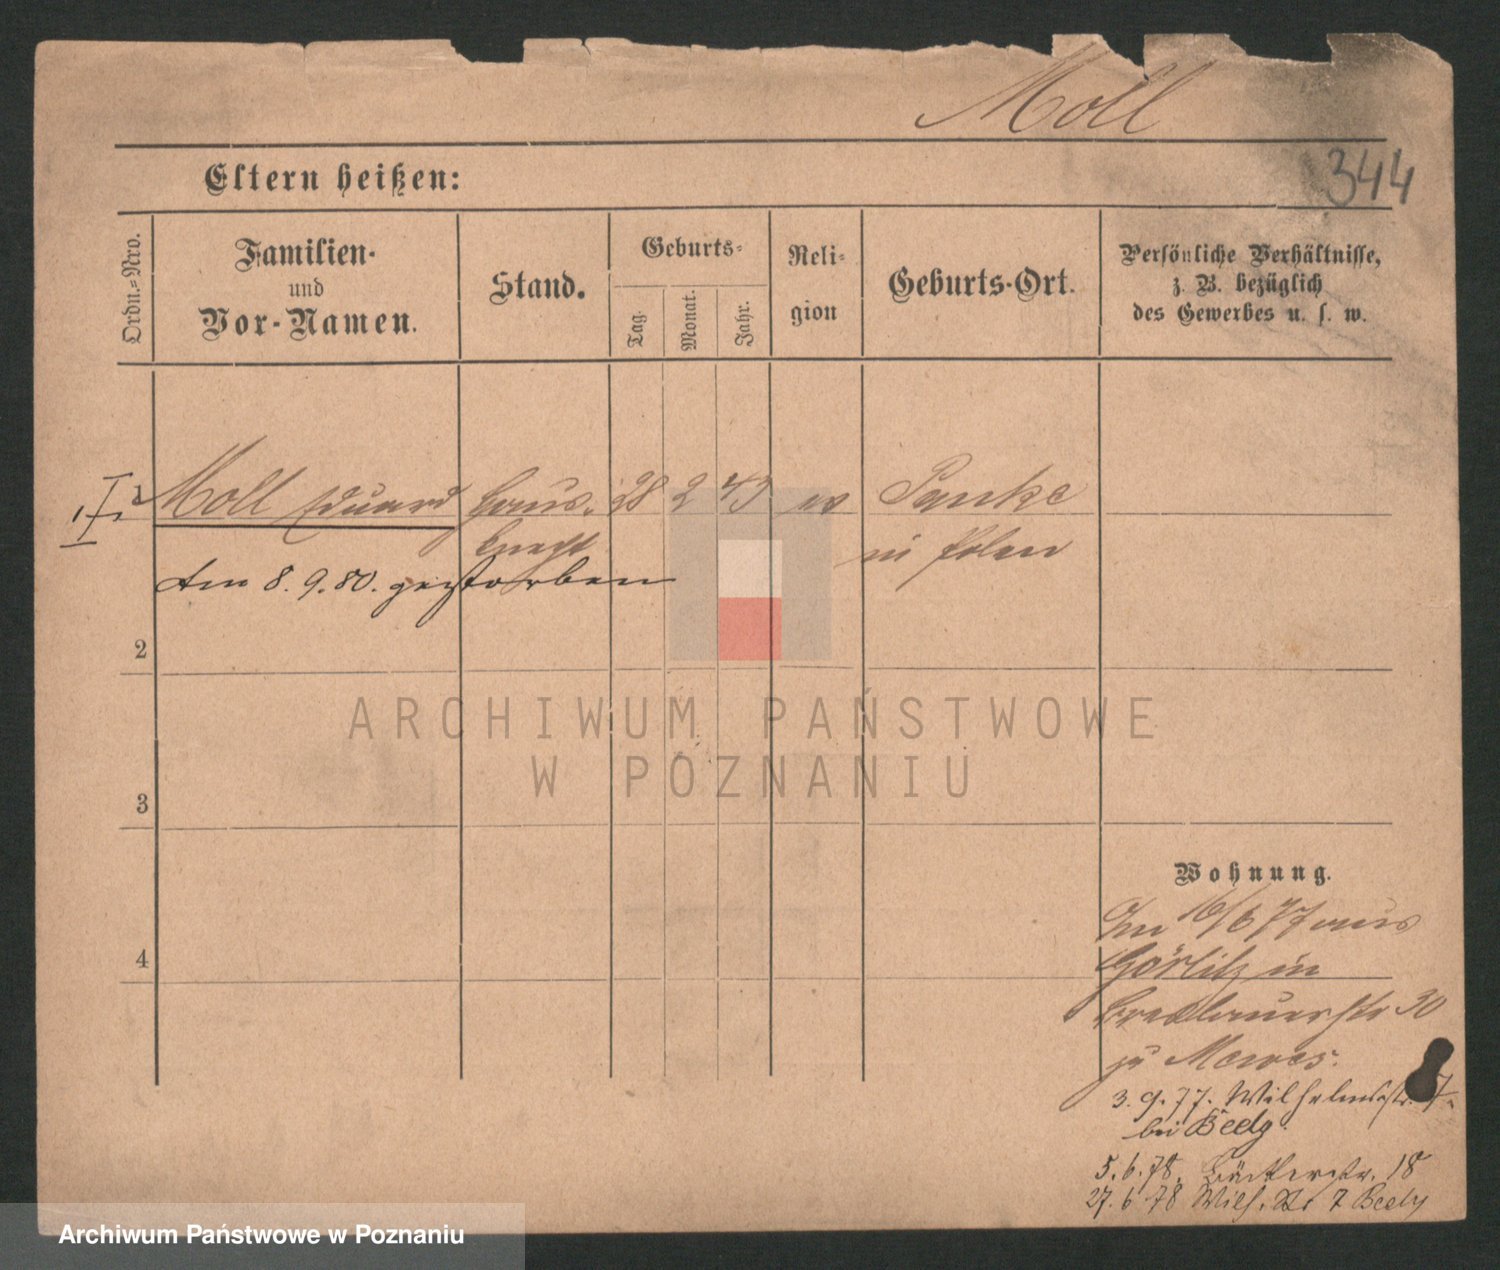 Moll
344
Eltern heißen:
Ordn.=Nro.
Familien-
und
Vor-Namen.
Stand.
Geburts-
Tag.
Monat.
Jahr.
Reli-
gion
Geburts-Ort.
Persönliche Verhältnisse,
z. B. bezüglich
des Gewerbes u. s. w.
Moll Eduard Haus- 28 2 43 ev
knecht in Polen
Am 8. 9. 80. gestorben
2
ARCHIWUM PAŃSTWOWE
W POZNANIU
3
Wohnung.
16/6 77 aus
4
Görlitz in
Breslauerstr 30
zu
3. 9. 77. Wilhelmstr. 7.
bei Beely.
5. 6. 78. Bäckerstr. 18
27. 6 78 Wilh. Str 7 Beely
Archiwum Państwowe w Poznaniu